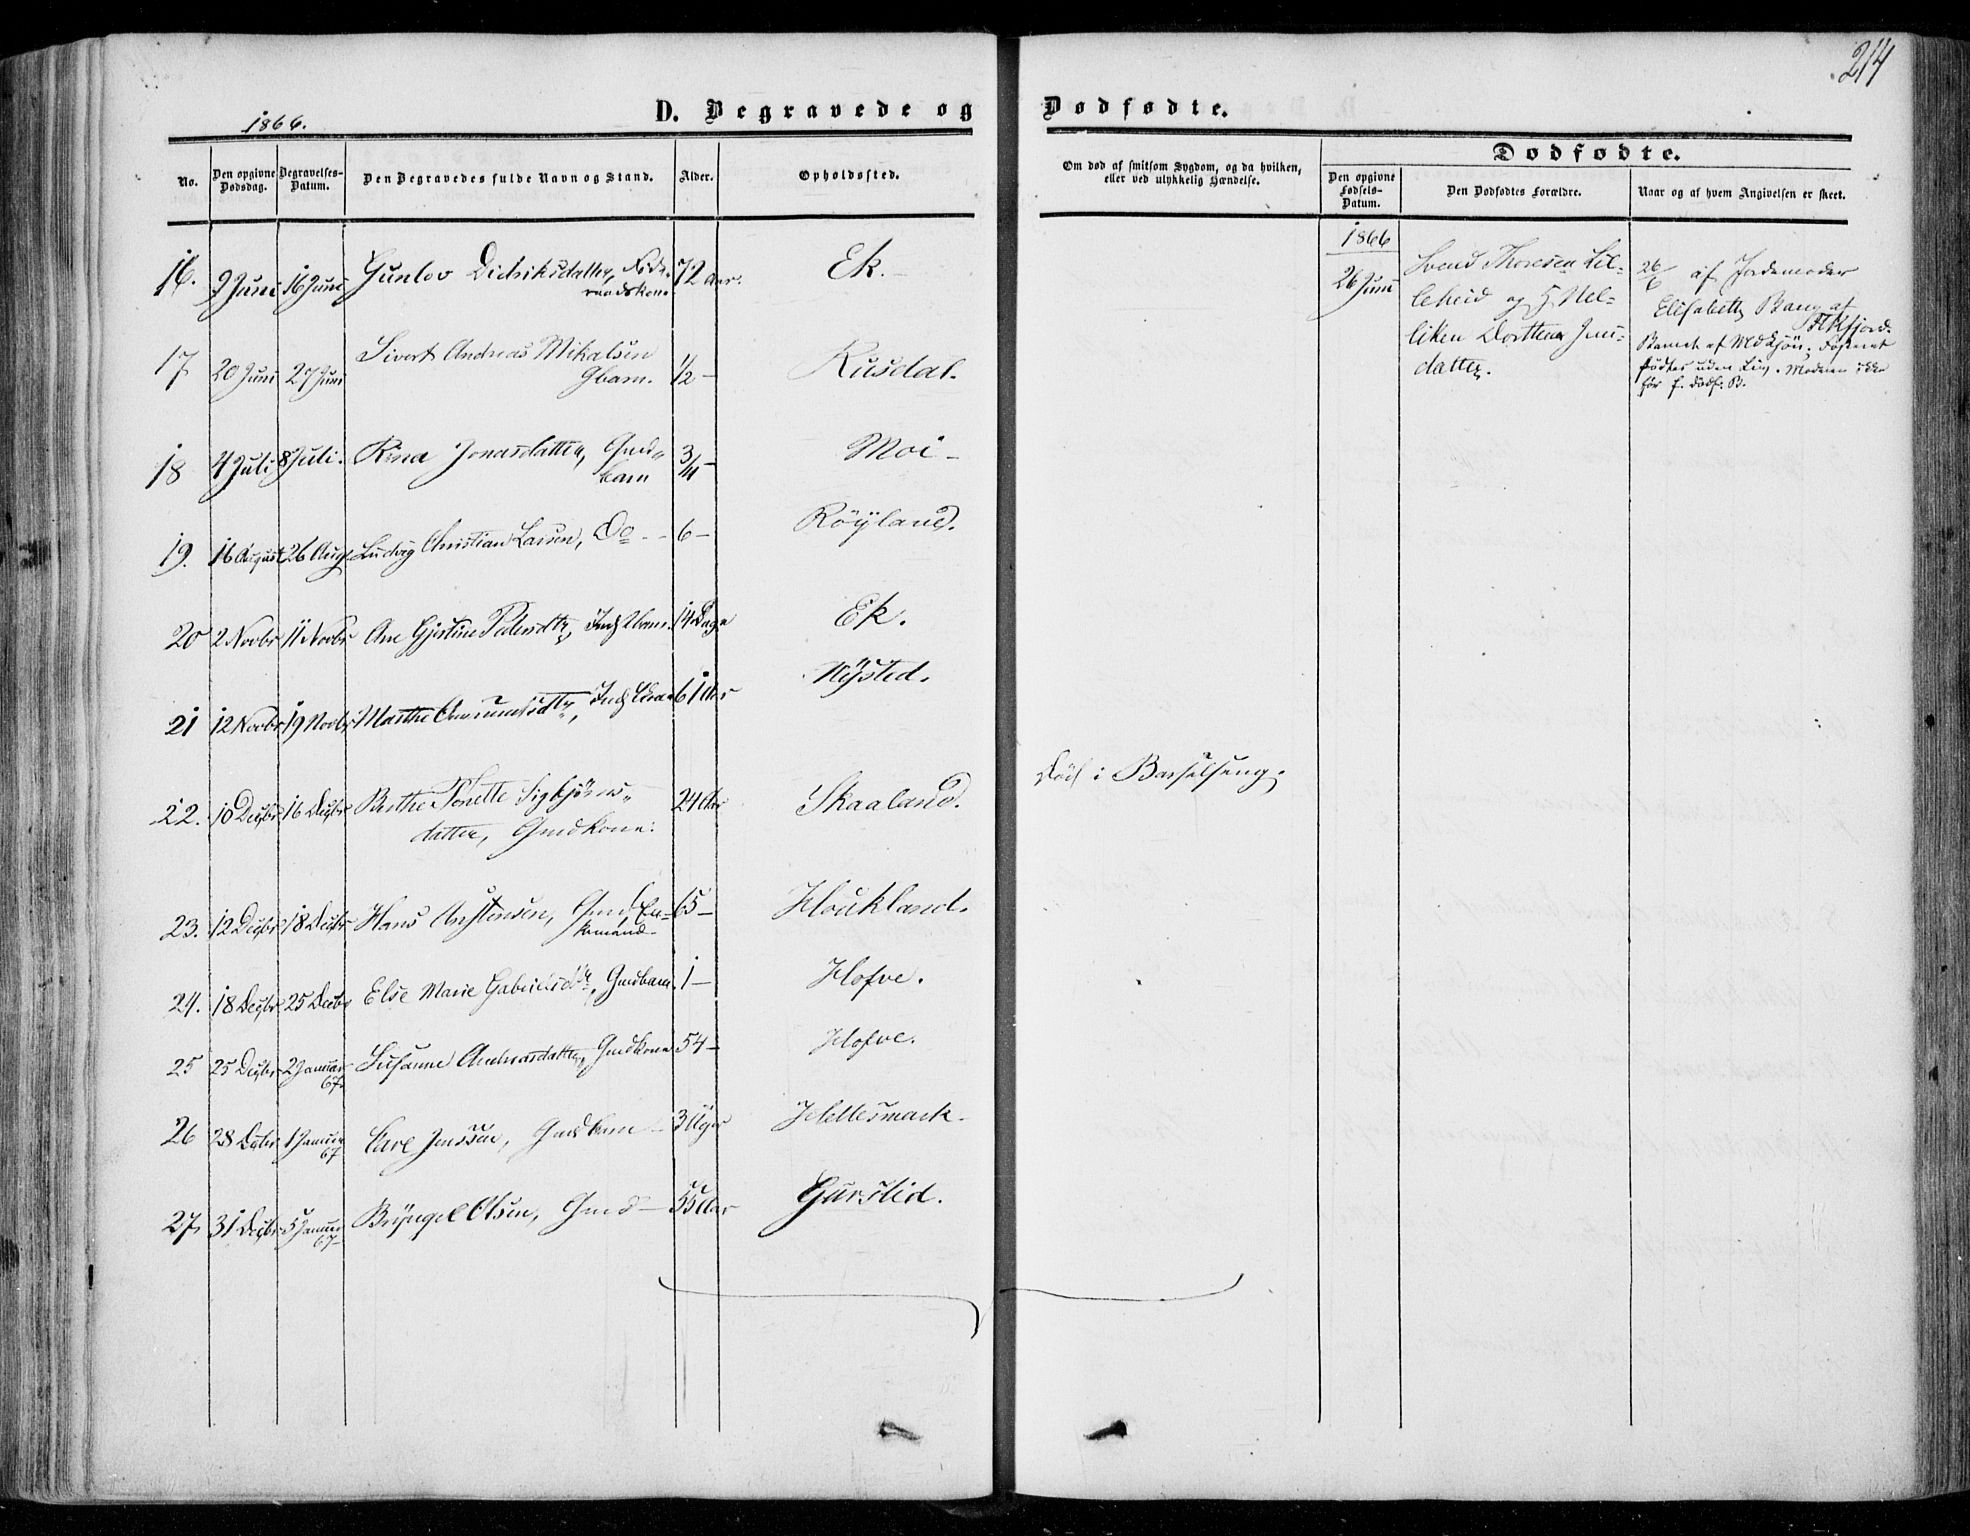 214
1866.
D. Begravede og Dødfødte.
No.
Den opgivne Dødsdag.
Begravelses-Datum.
Den Begravedes fulde Navn og Stand.
Alder.
Opholdssted.
Om død af smitsom Sygdom, og da hvilken,
eller ved ulykkelig Hændelse.
Dødfødte.
Den opgivne Fødsels-Datum.
Den Dødfødtes Forældre.
Naar og af hvem Angivelsen er skeet.
16. 9 Juni 16 Juni Gunlov Didriksdatter, 72 Aar. Ek.
17 20 Juni 27 Juni Sivert Andreas Mikalsen ½ – Rusdal.
Gbarn.
18 4 Juli 8 Juli. Rina Jonasdatter, Gmd„ 3/4 – Moi –
barn
19. 16 August 26 Aug Ludvig Christian Larsen, Do – 6 – Röyland.
20 2 Novbr 11 Novbr Ane Gjertine Pedersdtr, 14 Dage Ek.
21 12 Novbr 19 Novbr Marthe 61 Aar Nysted.
22. 10 Decbr 16 Decbr Berthe Tonette Sigbjörns„ 24 Aar Skaaland. Död i Barselseng.
datter, Gmdkone.
23. 12 Decbr 18 Decbr Hans Austensen, Gmd, En– 65 – Houkland.
kemand
24. 18 Decbr 25 Decbr Else Marie Gabrielsdtr, Gmdbarn. 1 – Hofve.
25 25 Decbr 2 Januar 67. Susanne Andreasdatter, Gmdkone 54 – Hofve.
26 28 Decbr 1 Januar 67 Jenssen, Gmdbarn – 3 Uger Hellesmark –
27. 31 Decbr 5 Januar 67 – Bryngel Olsen, Gmd – 55 Aar Gurslid.
1866
26 Juni
Svend Thoresen Lil–
leheid og H. Nel–
liken Dorthea
datter.
26/6 af Jordemoder
Elisabeth Bang af
Flikfjord.
Barnet af Mdkjön,
födtes uden Liv. Moderen ikke
för f. dödf. B.